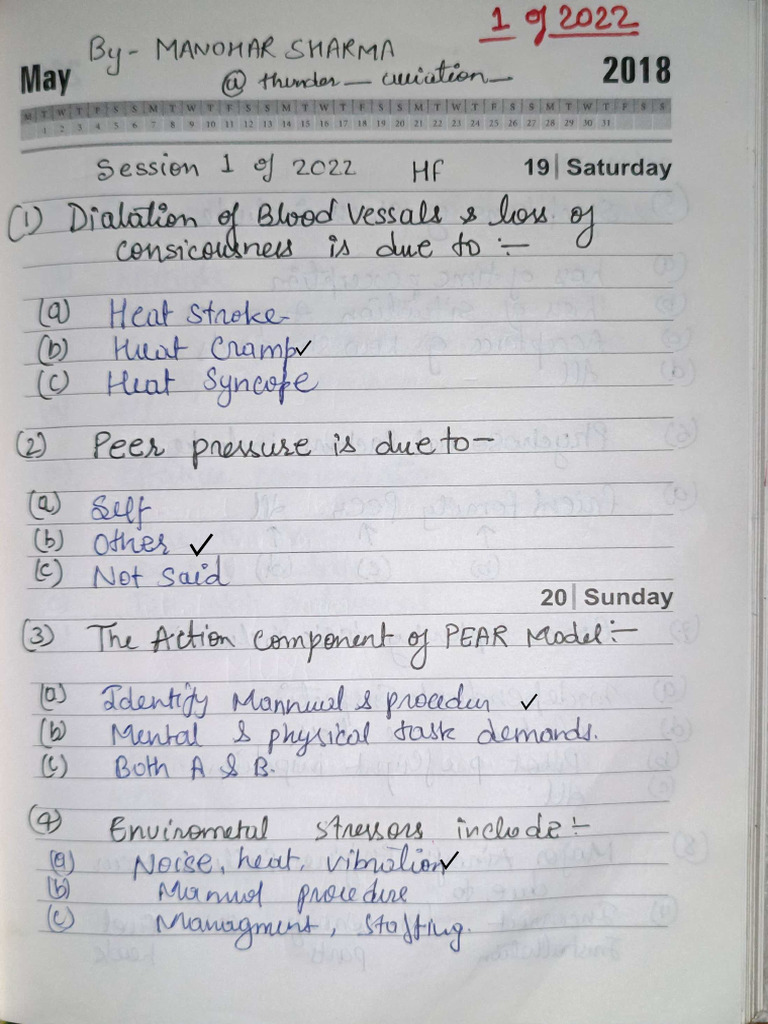 1 of 2022
By- MANOHAR SHARMA
May
2018
M T W T F S S M T W T F S S M T W T F S S M T W T F S S M T W T F S S
1 2 3 4 5 6 7 8 9 10 11 12 13 14 15 16 17 18 19 20 21 22 23 24 25 26 27 28 29 30 31
Session 1 of 2022 HF
19 Saturday
(1) Dialation of Blood Vessals & loss of
consicousness is due to :-
(a) Heat Stroke
(b) Heat Cramp ✓
(c) Heat Syncope
(2) Peer pressure is due to -
(a) Self
(b) Other ✓
(c) Not Said
20 Sunday
(3) The Action Component of PEAR Model :-
(a) Identify Mannual & procedur ✓
(b) Mental & physical task demands.
(c) Both A & B.
(4) Envirometal stressors include :-
(a) Noise, heat, vibration ✓
(b) Manual procedure
(c) Managment, Staffing.